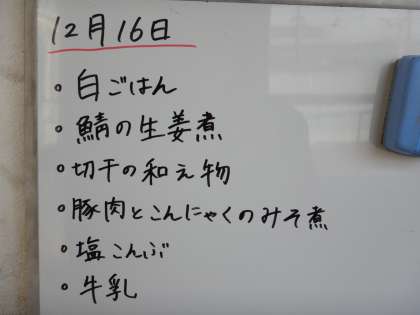 12月16日
• 白ごはん
• 鯖の生姜煮
• 切干の和え物
• 豚肉とこんにゃくのみそ煮
• 塩こんぶ
• 牛乳